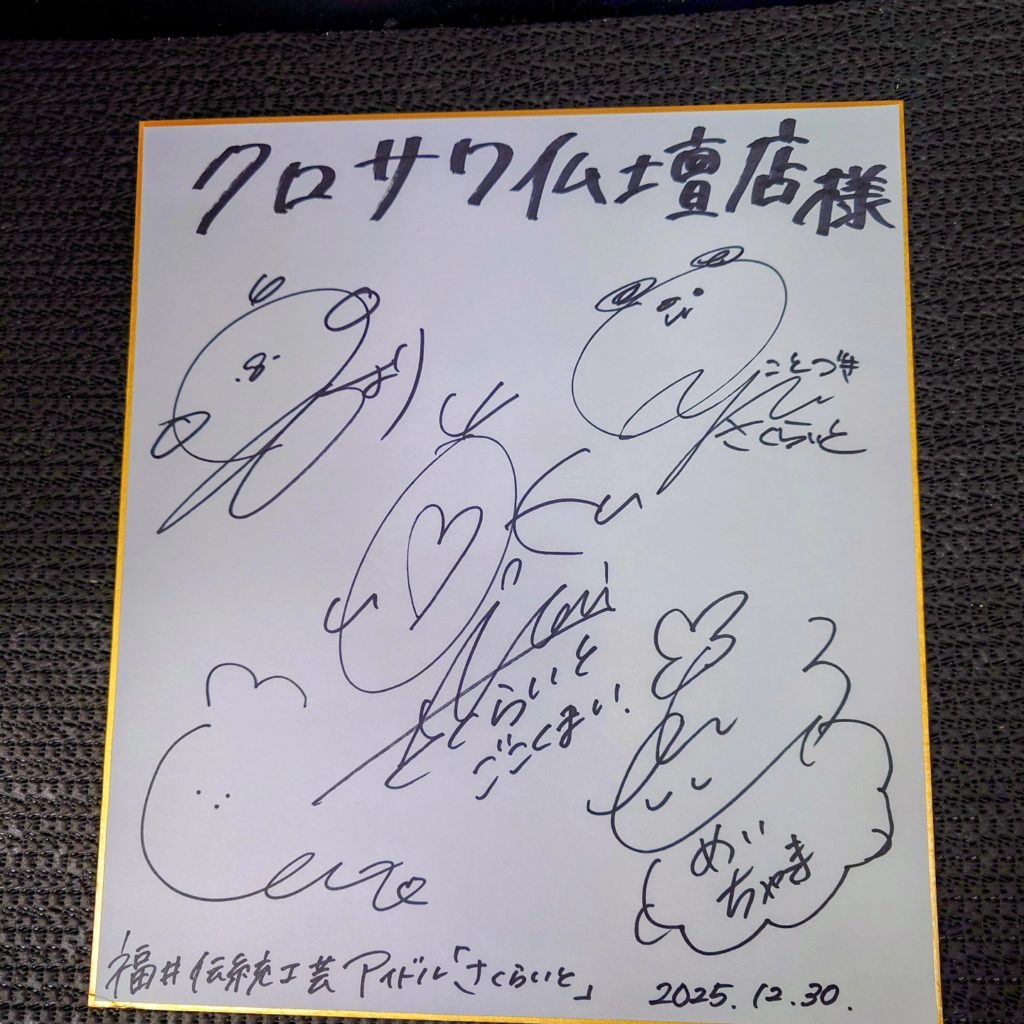 クロサワ仏壇店様
ことづき
さくらいと
さくらいと
ごこくまい.
めい
ちゃま
福井伝統工芸アイドル「さくらいと」
2025.12.30.